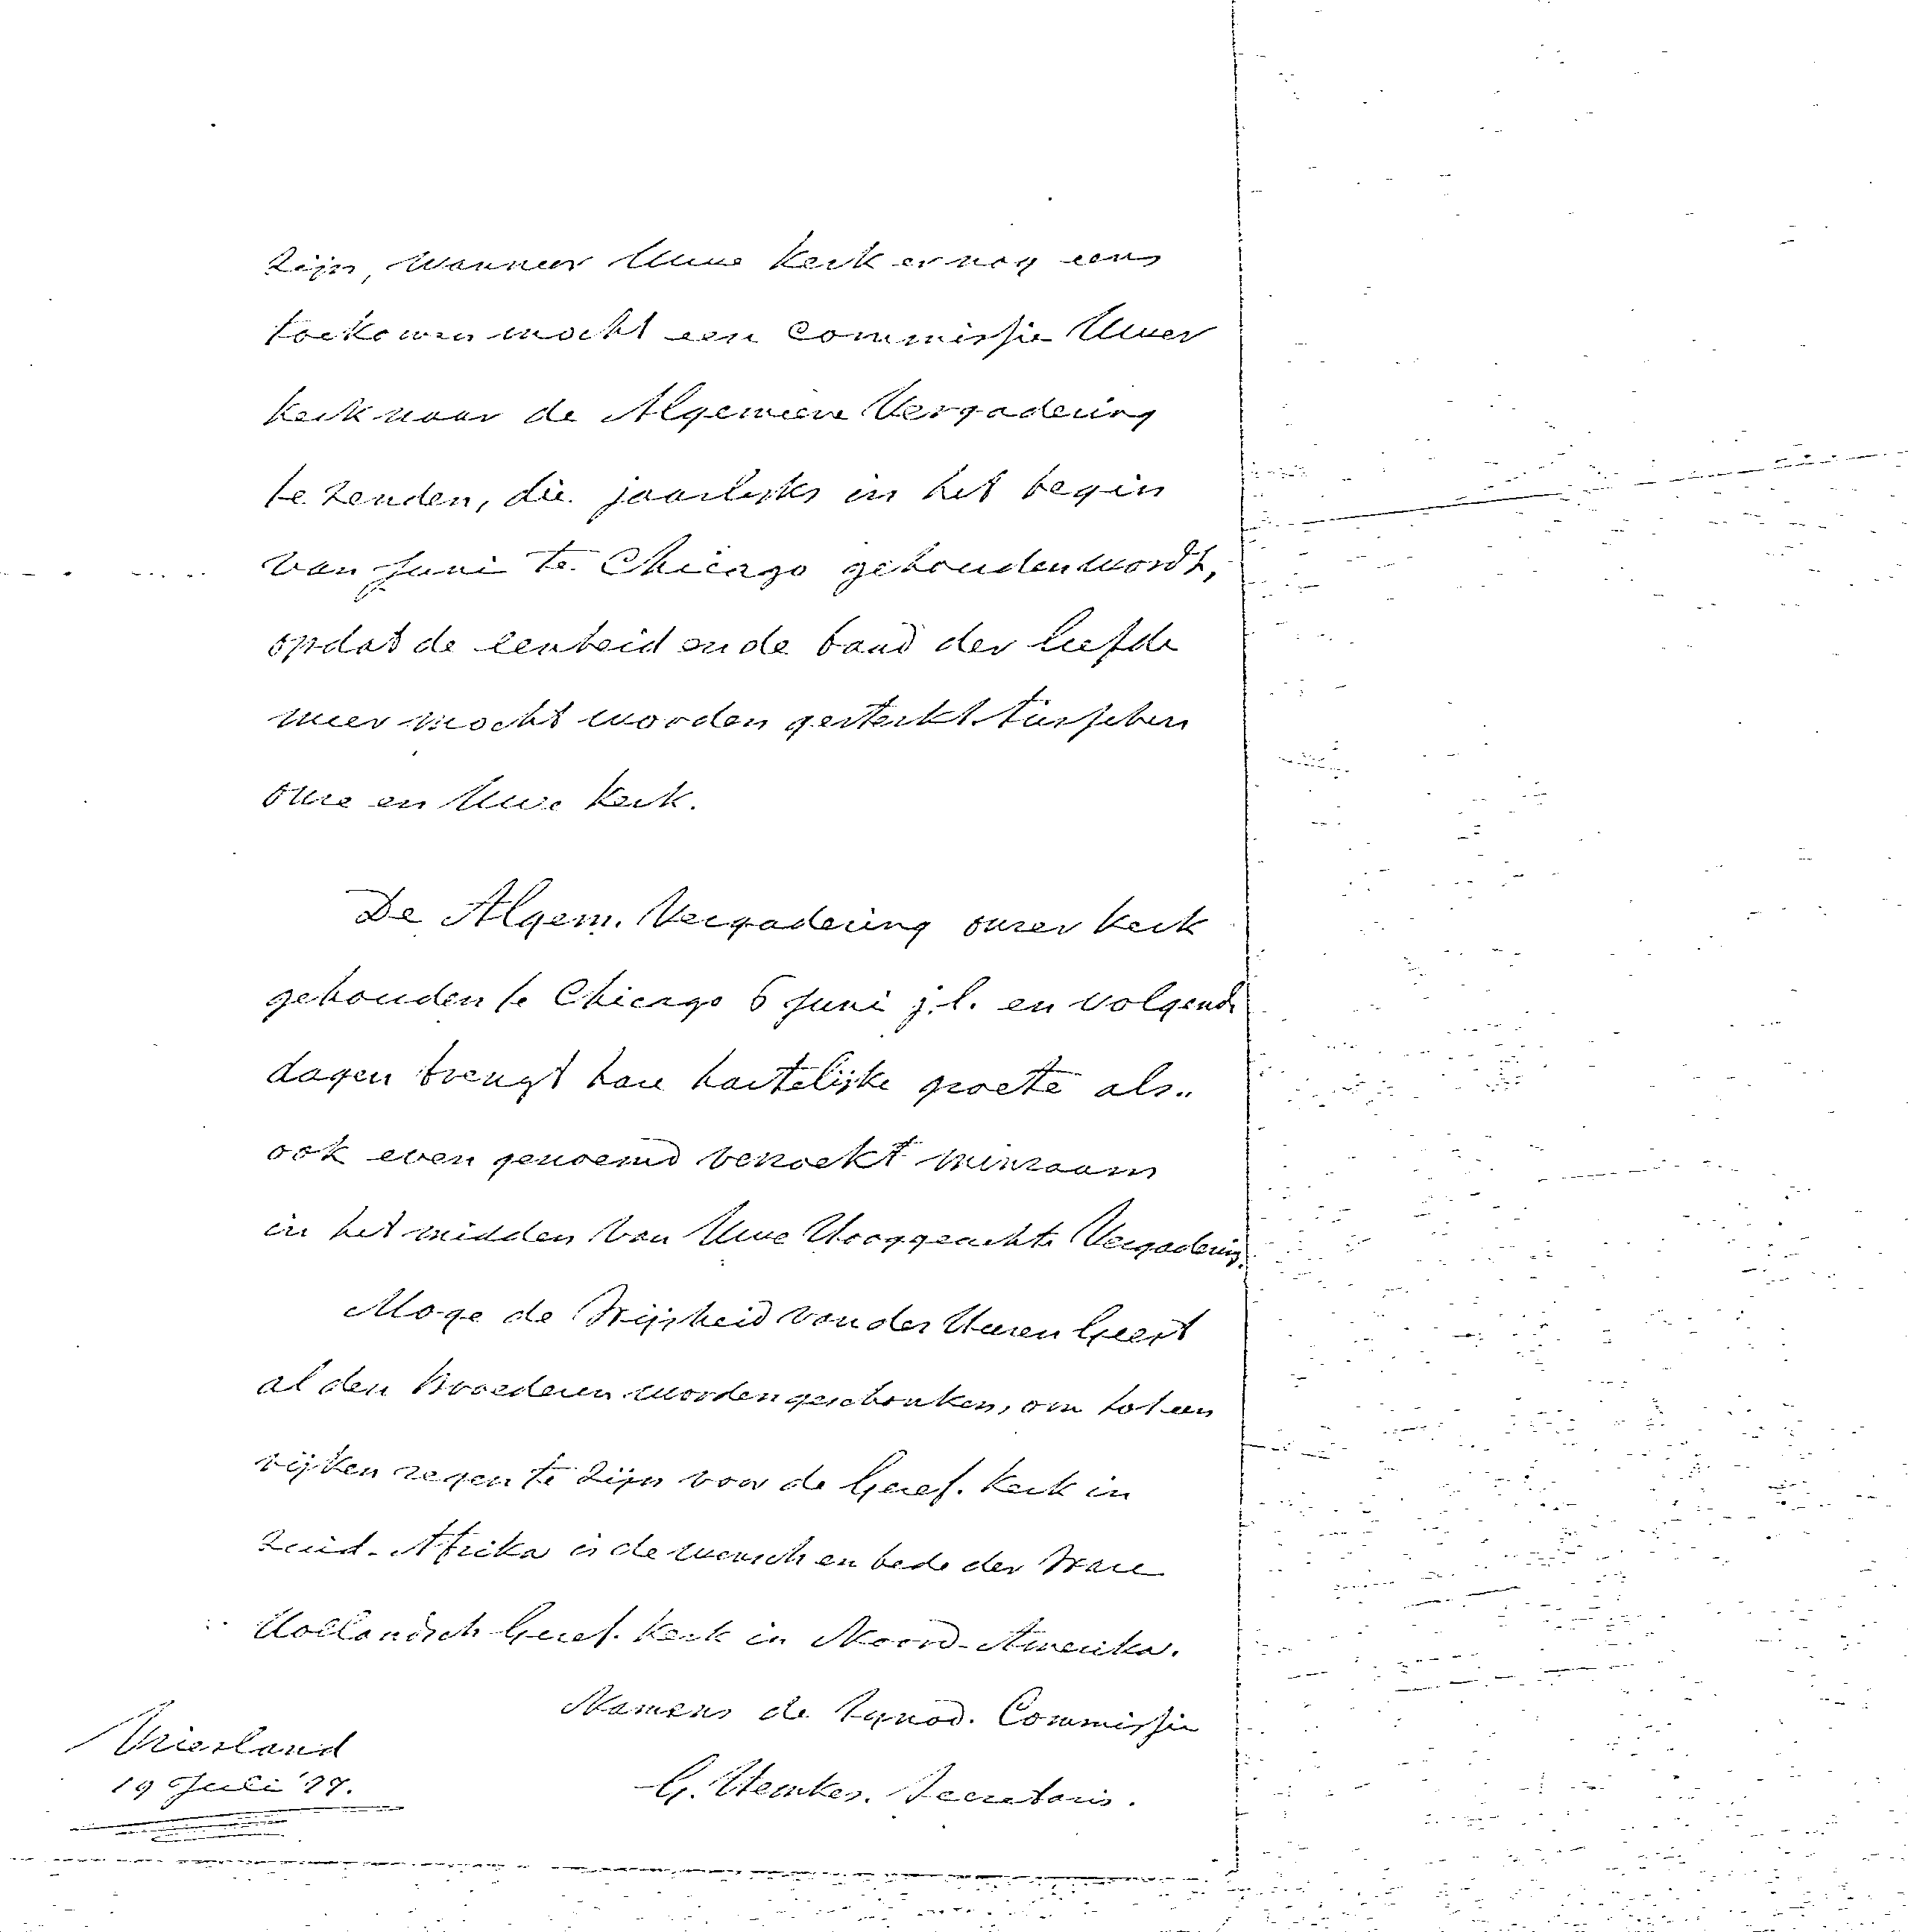 zijn, wanneer Uwe Kerk er nog eens
toekomen mocht een Commissie Uwer
Kerk naar de Algemeene Vergadering
te zenden, die jaarlijks in het begin
van Juni te Chicago gehouden wordt,
opdat de eenheid en de band der liefde
meer mocht worden gesterkt tusschen
onze en Uwe Kerk.
De Algem. Vergadering onzer Kerk
gehouden te Chicago 6 Juni j.l. en volgende
dagen brengt hare hartelijke groete als..
ook even genoemd verzoekt minzaam
in het midden van Uwe Hooggeachte Vergadering.
Moge de Wijsheid van des Heeren Geest
al den Broederen worden geschonken, om tot een
rijken zegen te zijn voor de Geref. Kerk in
Zuid-Afrika is de wensch en bede der Ware
Hollandsch Geref. Kerk in Noord-Amerika.
Namens de Synod. Commissie
Vriesland
19 Juli '97.
G. Hemkes. Secretaris.